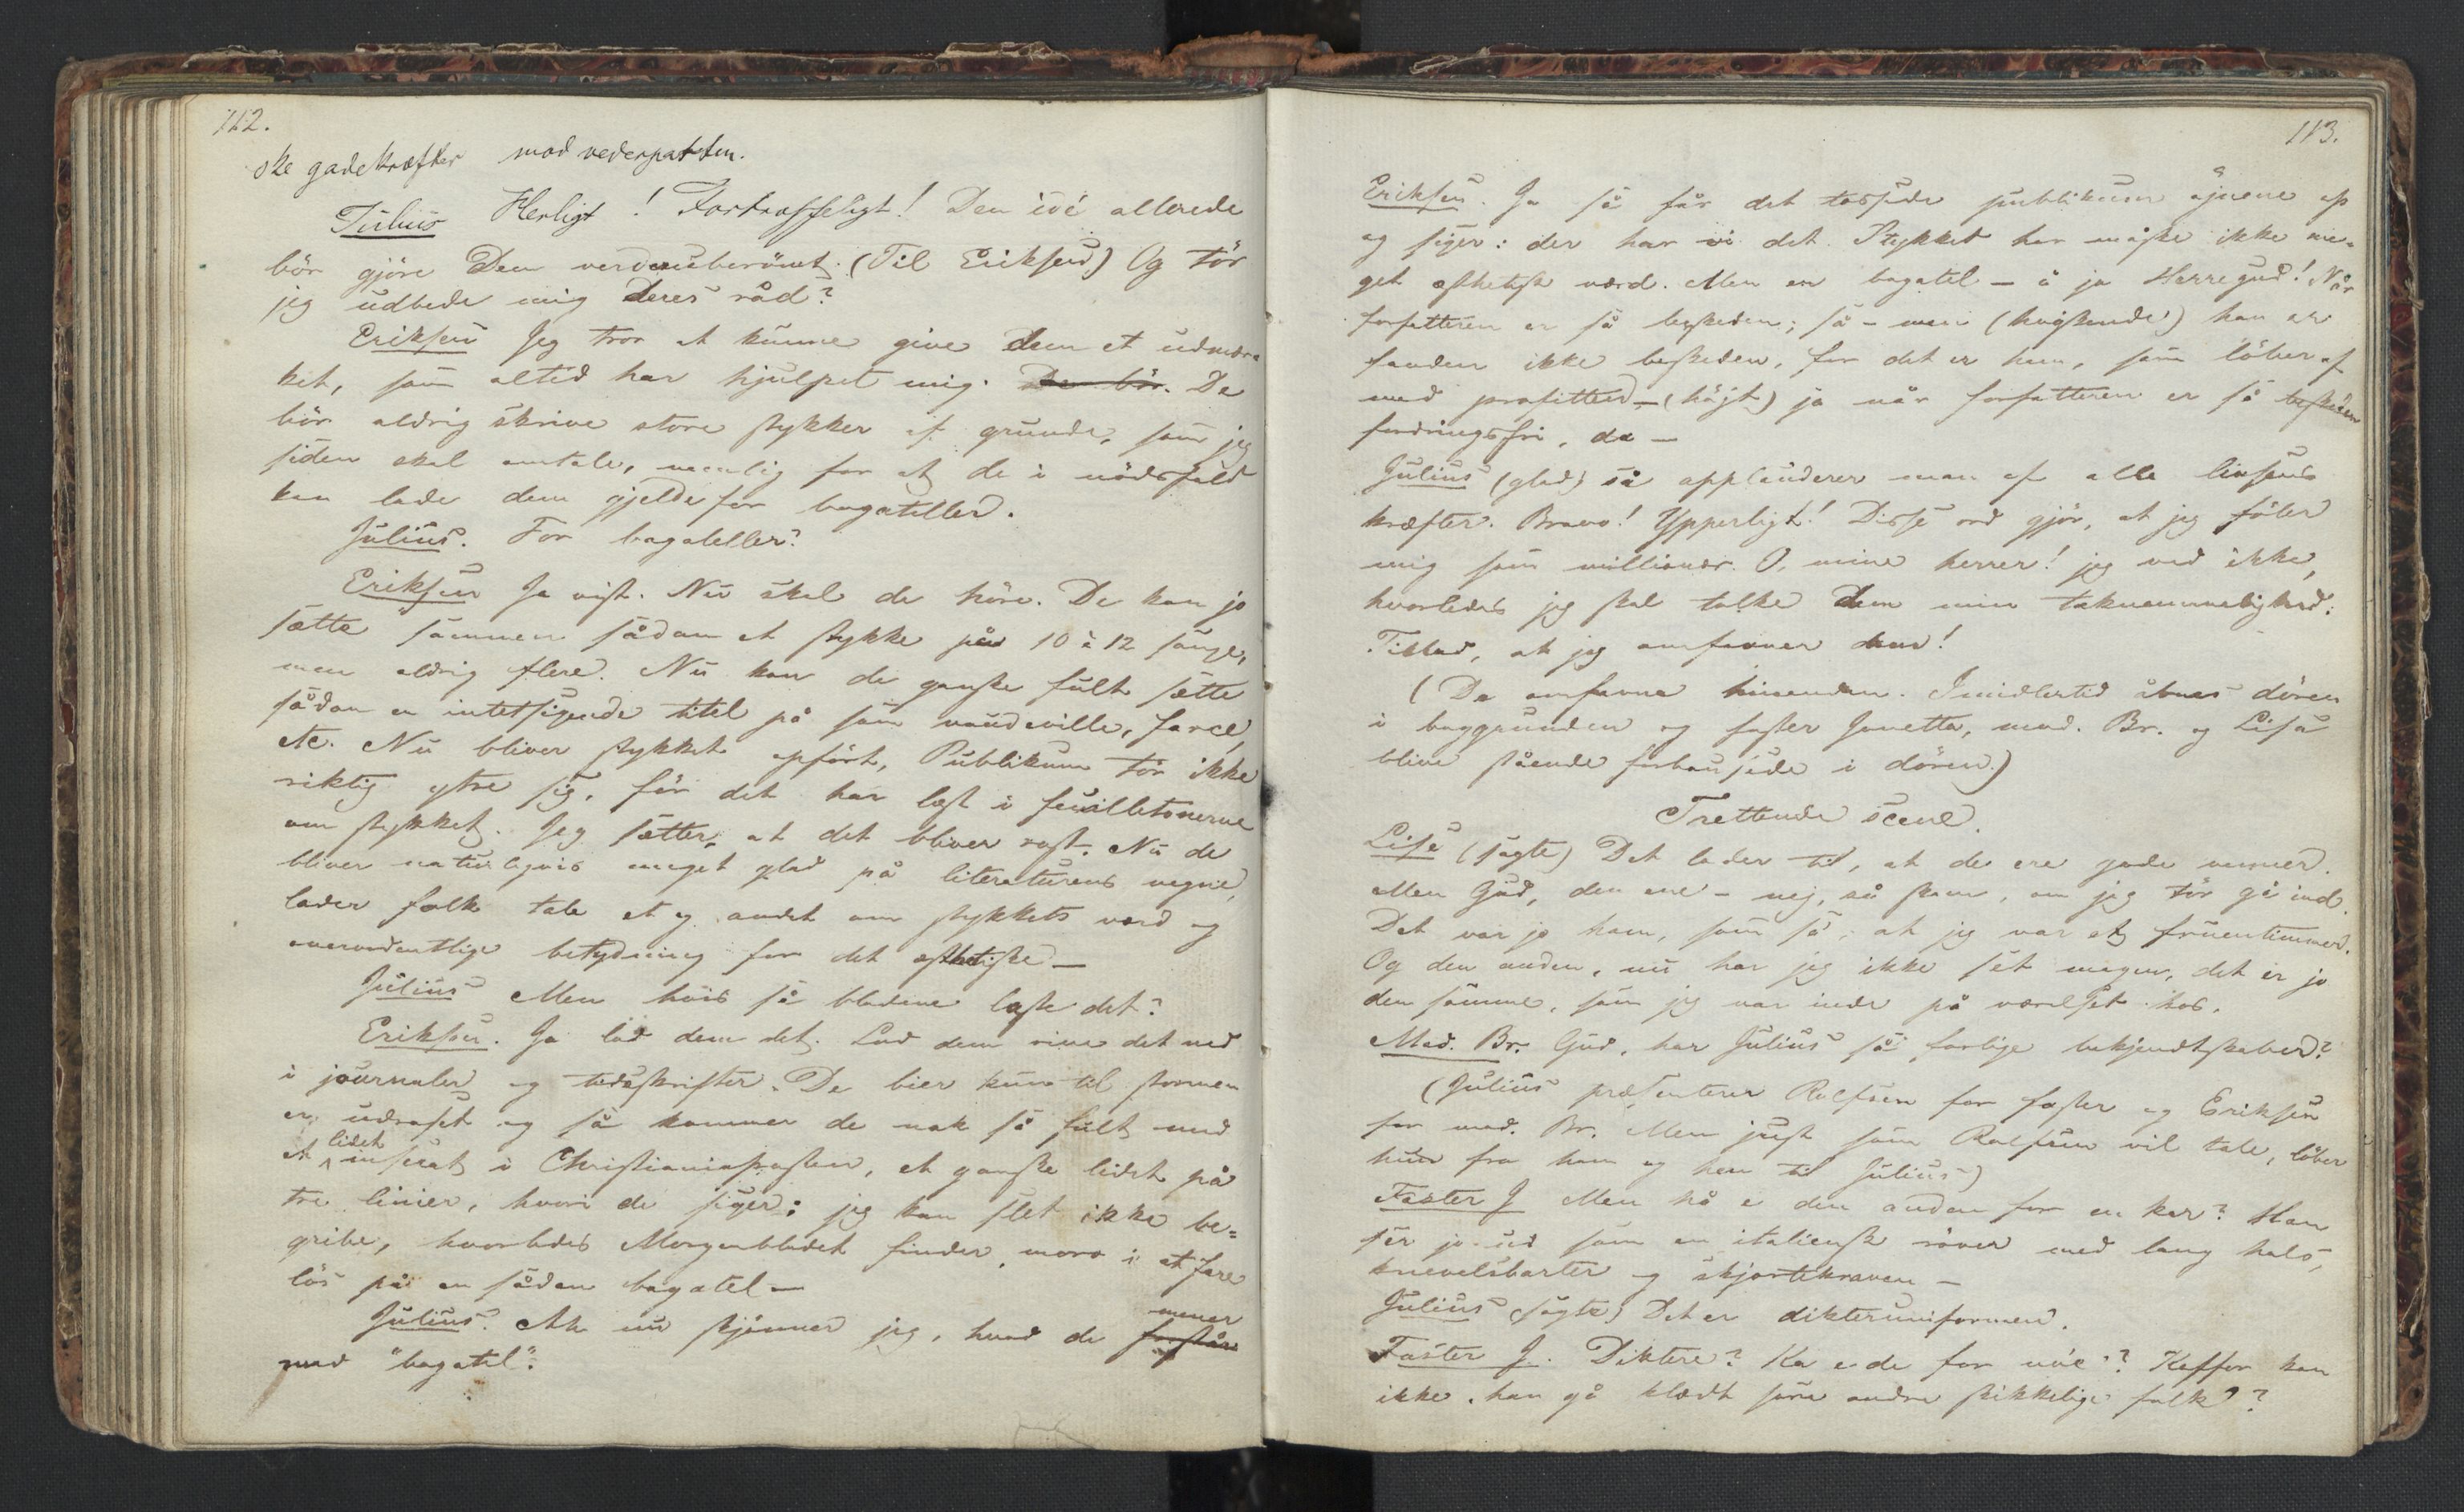 112.
ske gadekræfter mod vederparten.
Julius Herligt! Fortræffeligt! Den idé allerede
bör gjöre Dem verdensberömt. (Til Eriksen) Og tör
jeg udbede mig Deres råd?
Eriksen Jeg tror at kunne give Dem et udmær=
ket, som altid har hjulpet mig. De bör. De
bör aldrig skrive store stykker af grunde, som jeg
siden skal omtale, nemlig for at de i nödsfald
kan lade dem gjelde for bagateller.
Julius. For bagateller?
Eriksen Ja vist. Nu skal de höre. De kan jo
sætte sammen sådan et stykke på 10 à 12 sange,
men aldrig flere. Nu kan de ganske fult sætte
sådan en intetsigende titel på som vaudeville, farce,
etc. Nu bliver stykket opfört, Publikum tör ikke
riktig ytre sig, för det har læst i feuilletonerne
om stykket. Jeg sætter, at det bliver rost. Nu de
bliver naturligvis meget glad på literaturens vegne,
lader folk tale et og andet om stykkets værd og
overordentlige betydning for det æsthetiske —
Julius Men hvis så bladene laste det?
Eriksen. Ja lad dem det. Lad dem rive det ned
i journaler og tidsskrifter. De bier kun til stormen
er udraset og så kommer de nok så fult med
et lidet inserat i Christianiaposten, et ganske lidet på
tre linier, hvori de siger: jeg kan slet ikke be=
gribe, hvorledes Morgenbladet finder moro i at fare
lös på en sådan bagatel —
Julius. Ah nu skjönner jeg, hvad de forstår mener
med "bagatel".
113.
Eriksen. Ja så får det tossede publikum öjnene op
og siger: der har vi det. Stykket har måske ikke me=
get æsthetisk værd. Men en bagatel — å ja Herregud! Når
forfatteren er så beskeden; så — men (hviskende) han er
fanden ikke beskeden, for det er ham, som löber af
med profitten — (höjt) ja når forfatteren er så beskeden
fordringsfri, da —
Julius (glad) så applauderer man af alle livsens
kræfter. Bravo! Ypperligt! Disse ord gjör, at jeg föler
mig som millionær. O, mine herrer! jeg ved ikke,
hvorledes jeg skal tolke Dem min taknemmelighed.
Tillad, at jeg omfavner dem!
(De omfavne hinanden. Imidlertid åbnes dören
i baggrunden og faster Janetta, mad. Br. og Lise
blive stående forbausede i dören.)
Trettende scene.
Lise (sagte) Det lader til, at de ere gode venner.
Men Gud, den ene — nej, så skam, om jeg tör gå ind.
Det var jo ham, som sa, at jeg var et fruentimmer.
Og den anden, nu har jeg ikke set magen, det er jo
den samme, som jeg var inde på værelset hos.
Mad. Br. Gud, har Julius så farlige bekjendtskaber?
(Julius præsenterer Rolfsen for faster og Eriksen
for mad. Br. Men just som Rolfsen vil tale, löber
hun fra ham og hen til Julius)
Faster J Men hå e den anden for en kar? Han
ser jo ud som en italiensk röver med lang hals,
knevelsbarter og skjortekraven —
Julius (sagte) Det er dikteruniformen.
Faster J. Diktere? Ka e de for noe? Kaffor kan
ikke han gå klædt som andre skikkelige folk?